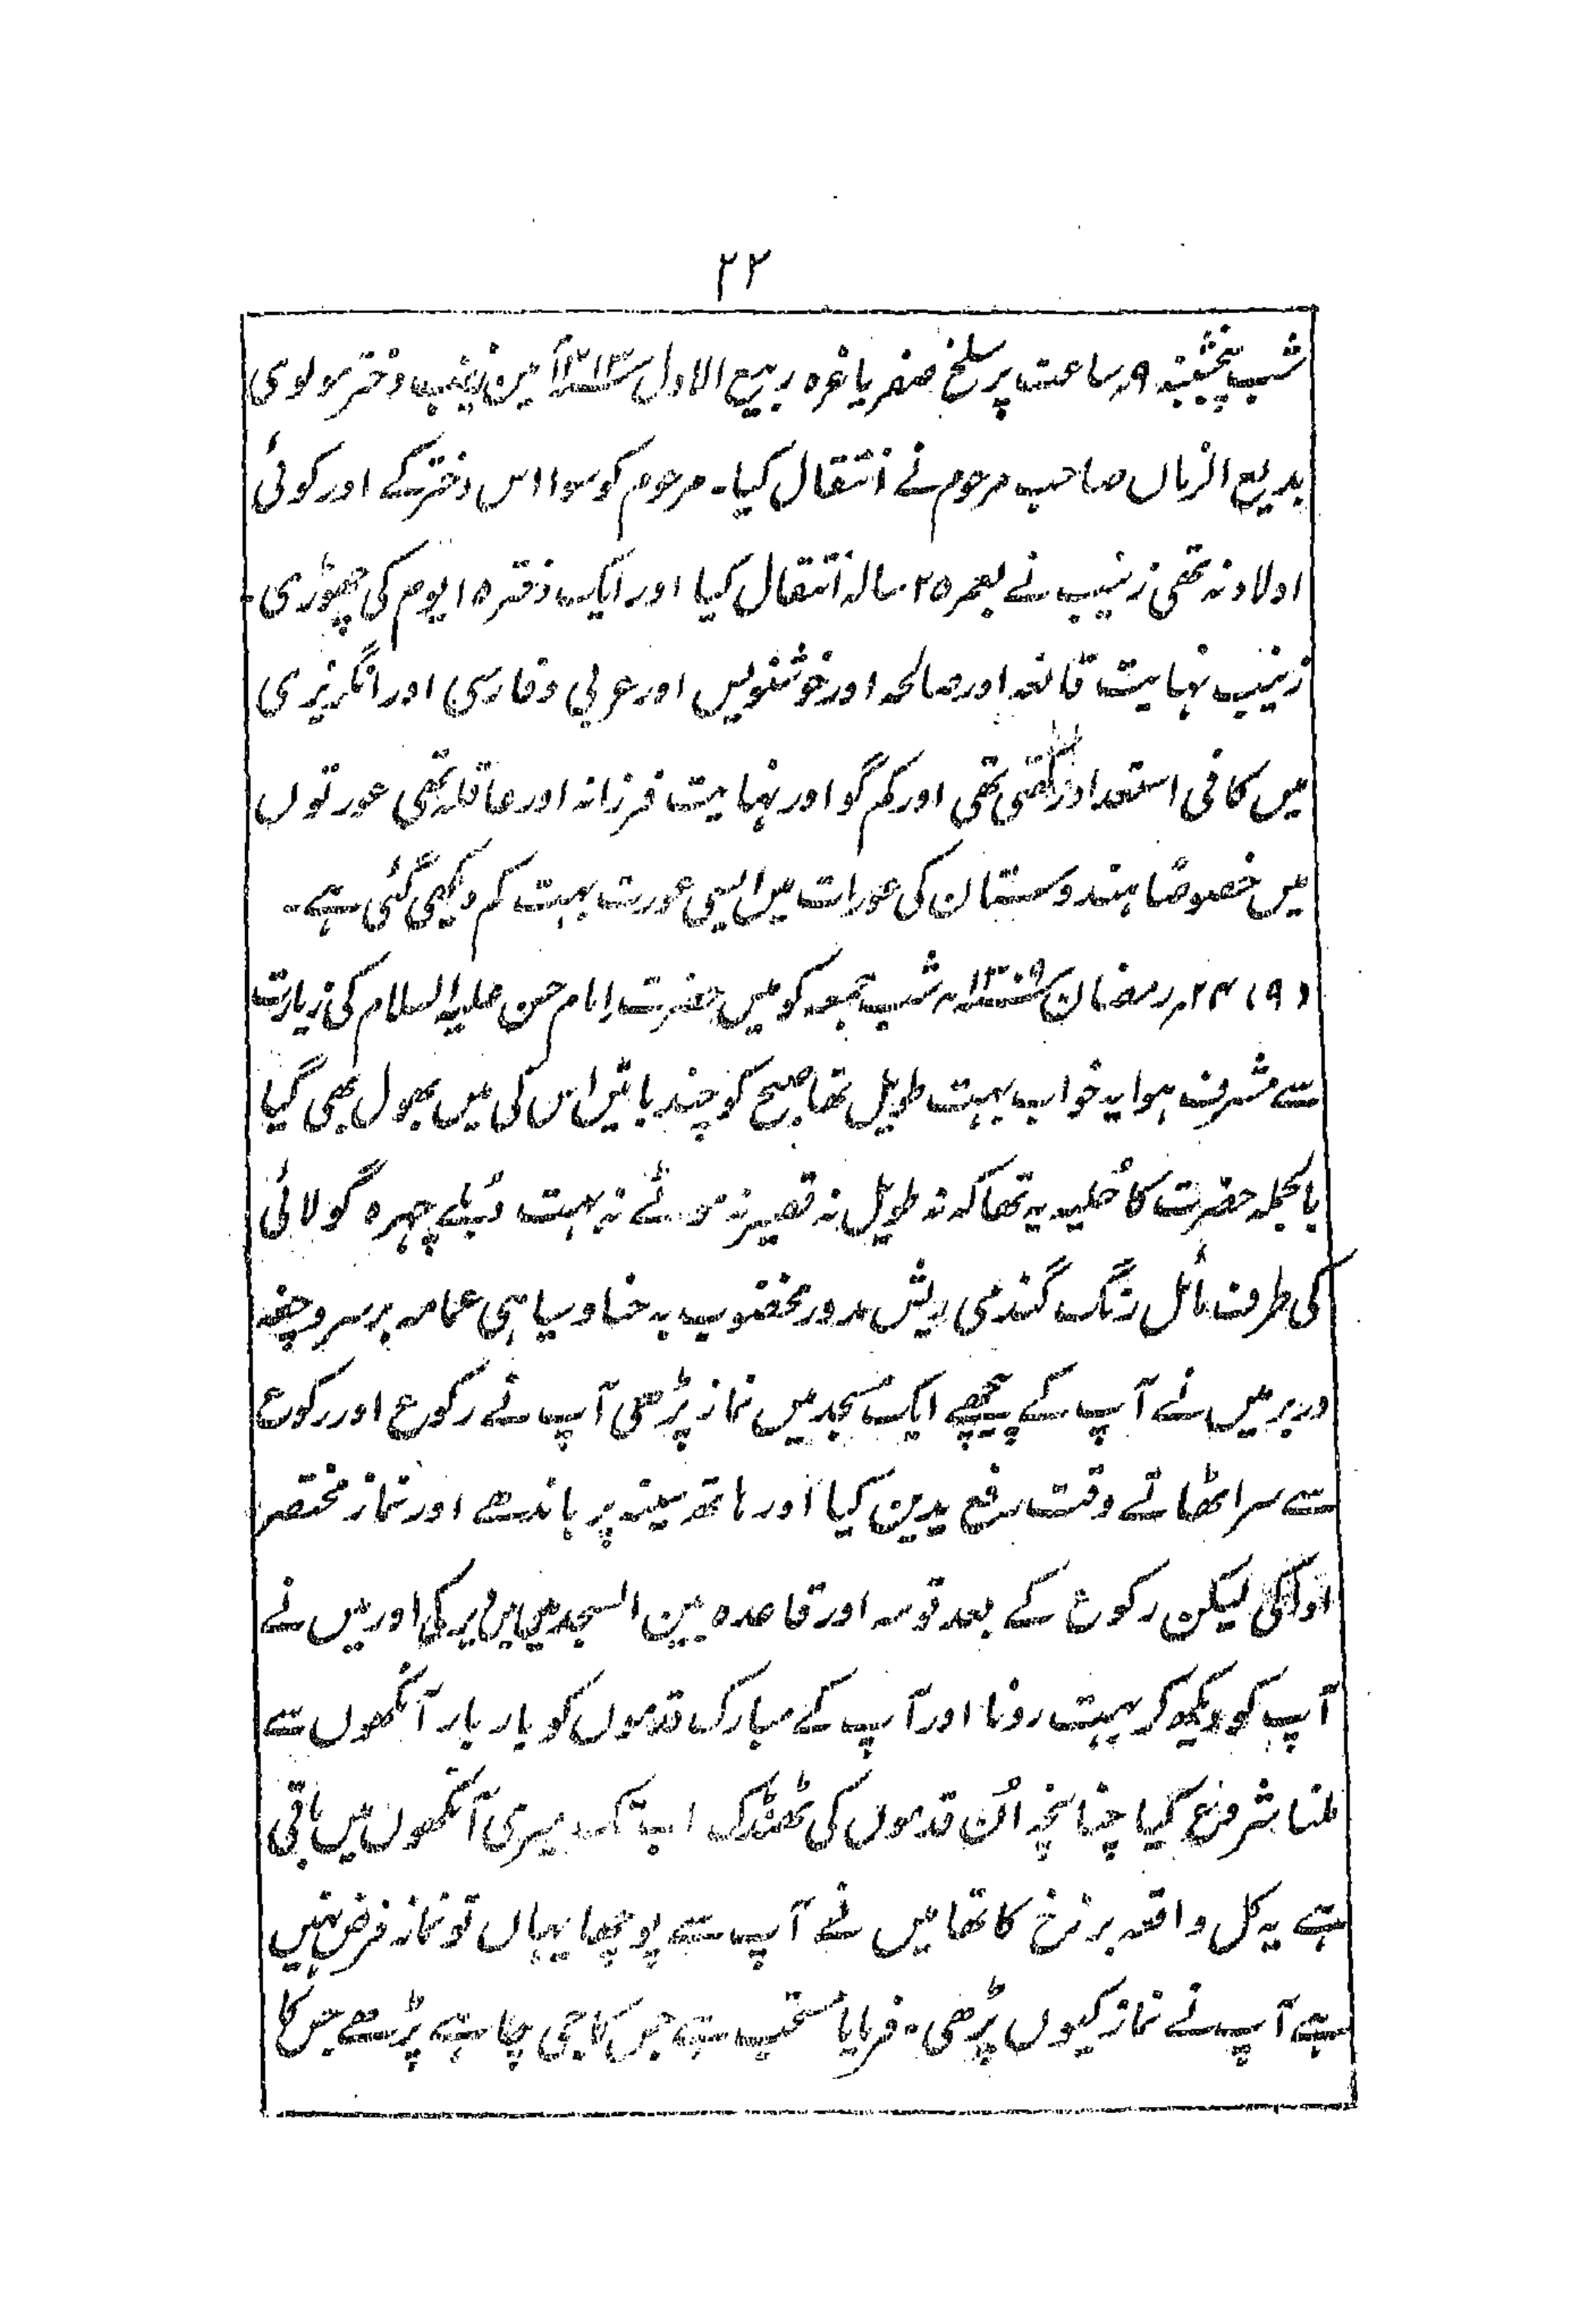 ۲۲
شب پنجشنبہ ۹ ساعت پر سلخ صفر یا غرہ ربیع الاول ۱۳۱۳ میں زینب دختر مولوی
بدیع الزماں صاحب مرحوم نے انتقال کیا۔ مرحوم کو سوا اس دختر کے اور کوئی
اولاد نہ تھی زینب نے بعمر ۲۵ سالہ انتقال کیا اور ایک دختر ۱۵ یوم کی چھوڑی۔
زینب نہایت قانعہ اور صالحہ اور خوشنویس اور عربی وفارسی اور انگریزی
میں کافی استعداد رکھتی تھی اور کم گو اور نہایت فرزانہ اور عاقلہ تھی عورتوں
میں خصوصًا ہندوستان کی عورات میں ایسی عورت بہت کم دیکھی گئی ہے۔
(۹) ۲۴ رمضان ۱۳۰۹ شب جمعہ کو میں حضرت امام حسن علیہ السلام کی زیارت
سے مشرف ہوا یہ خواب بہت طویل تھا صبح کو چند باتیں اس کی میں بھول بھی گیا
بالجملہ حضرت کا حُلیہ یہ تھا کہ نہ طویل نہ قصیر نہ موٹے نہ بہت دُبلے چہرہ گولائی
کی طرف مائل رنگ گندمی ریش مدور مخضوب بہ حنا وسیاہی عمامہ برسر وچغہ
دربر میں نے آپ کے پیچھے ایک مسجد میں نماز پڑھی آپ نے رکوع اور رکوع
سے سر اٹھاتے وقت رفع یدین کیا اور ہاتھ سینہ پر باندھے اور نماز مختصر
ادا کی لیکن رکوع کے بعد قومہ اور قاعدہ بین السجدتین میں دیر کی اور میں نے
آپ کو دیکھ کر بہت رونا اور آپ کے مبارک قدموں کو بار بار آنکھوں سے
ملنا شروع کیا چنانچہ اُن قدموں کی ٹھنڈک اب تک میری آنکھوں میں باقی
ہے یہ کل واقعہ برزخ کا تھا میں نے آپ سے پوچھا یہاں تو نماز فرض نہیں
ہے آپ نے نماز کیوں پڑھی۔ فرمایا مستحب ہے جس کا جی چاہے پڑھے جس کا